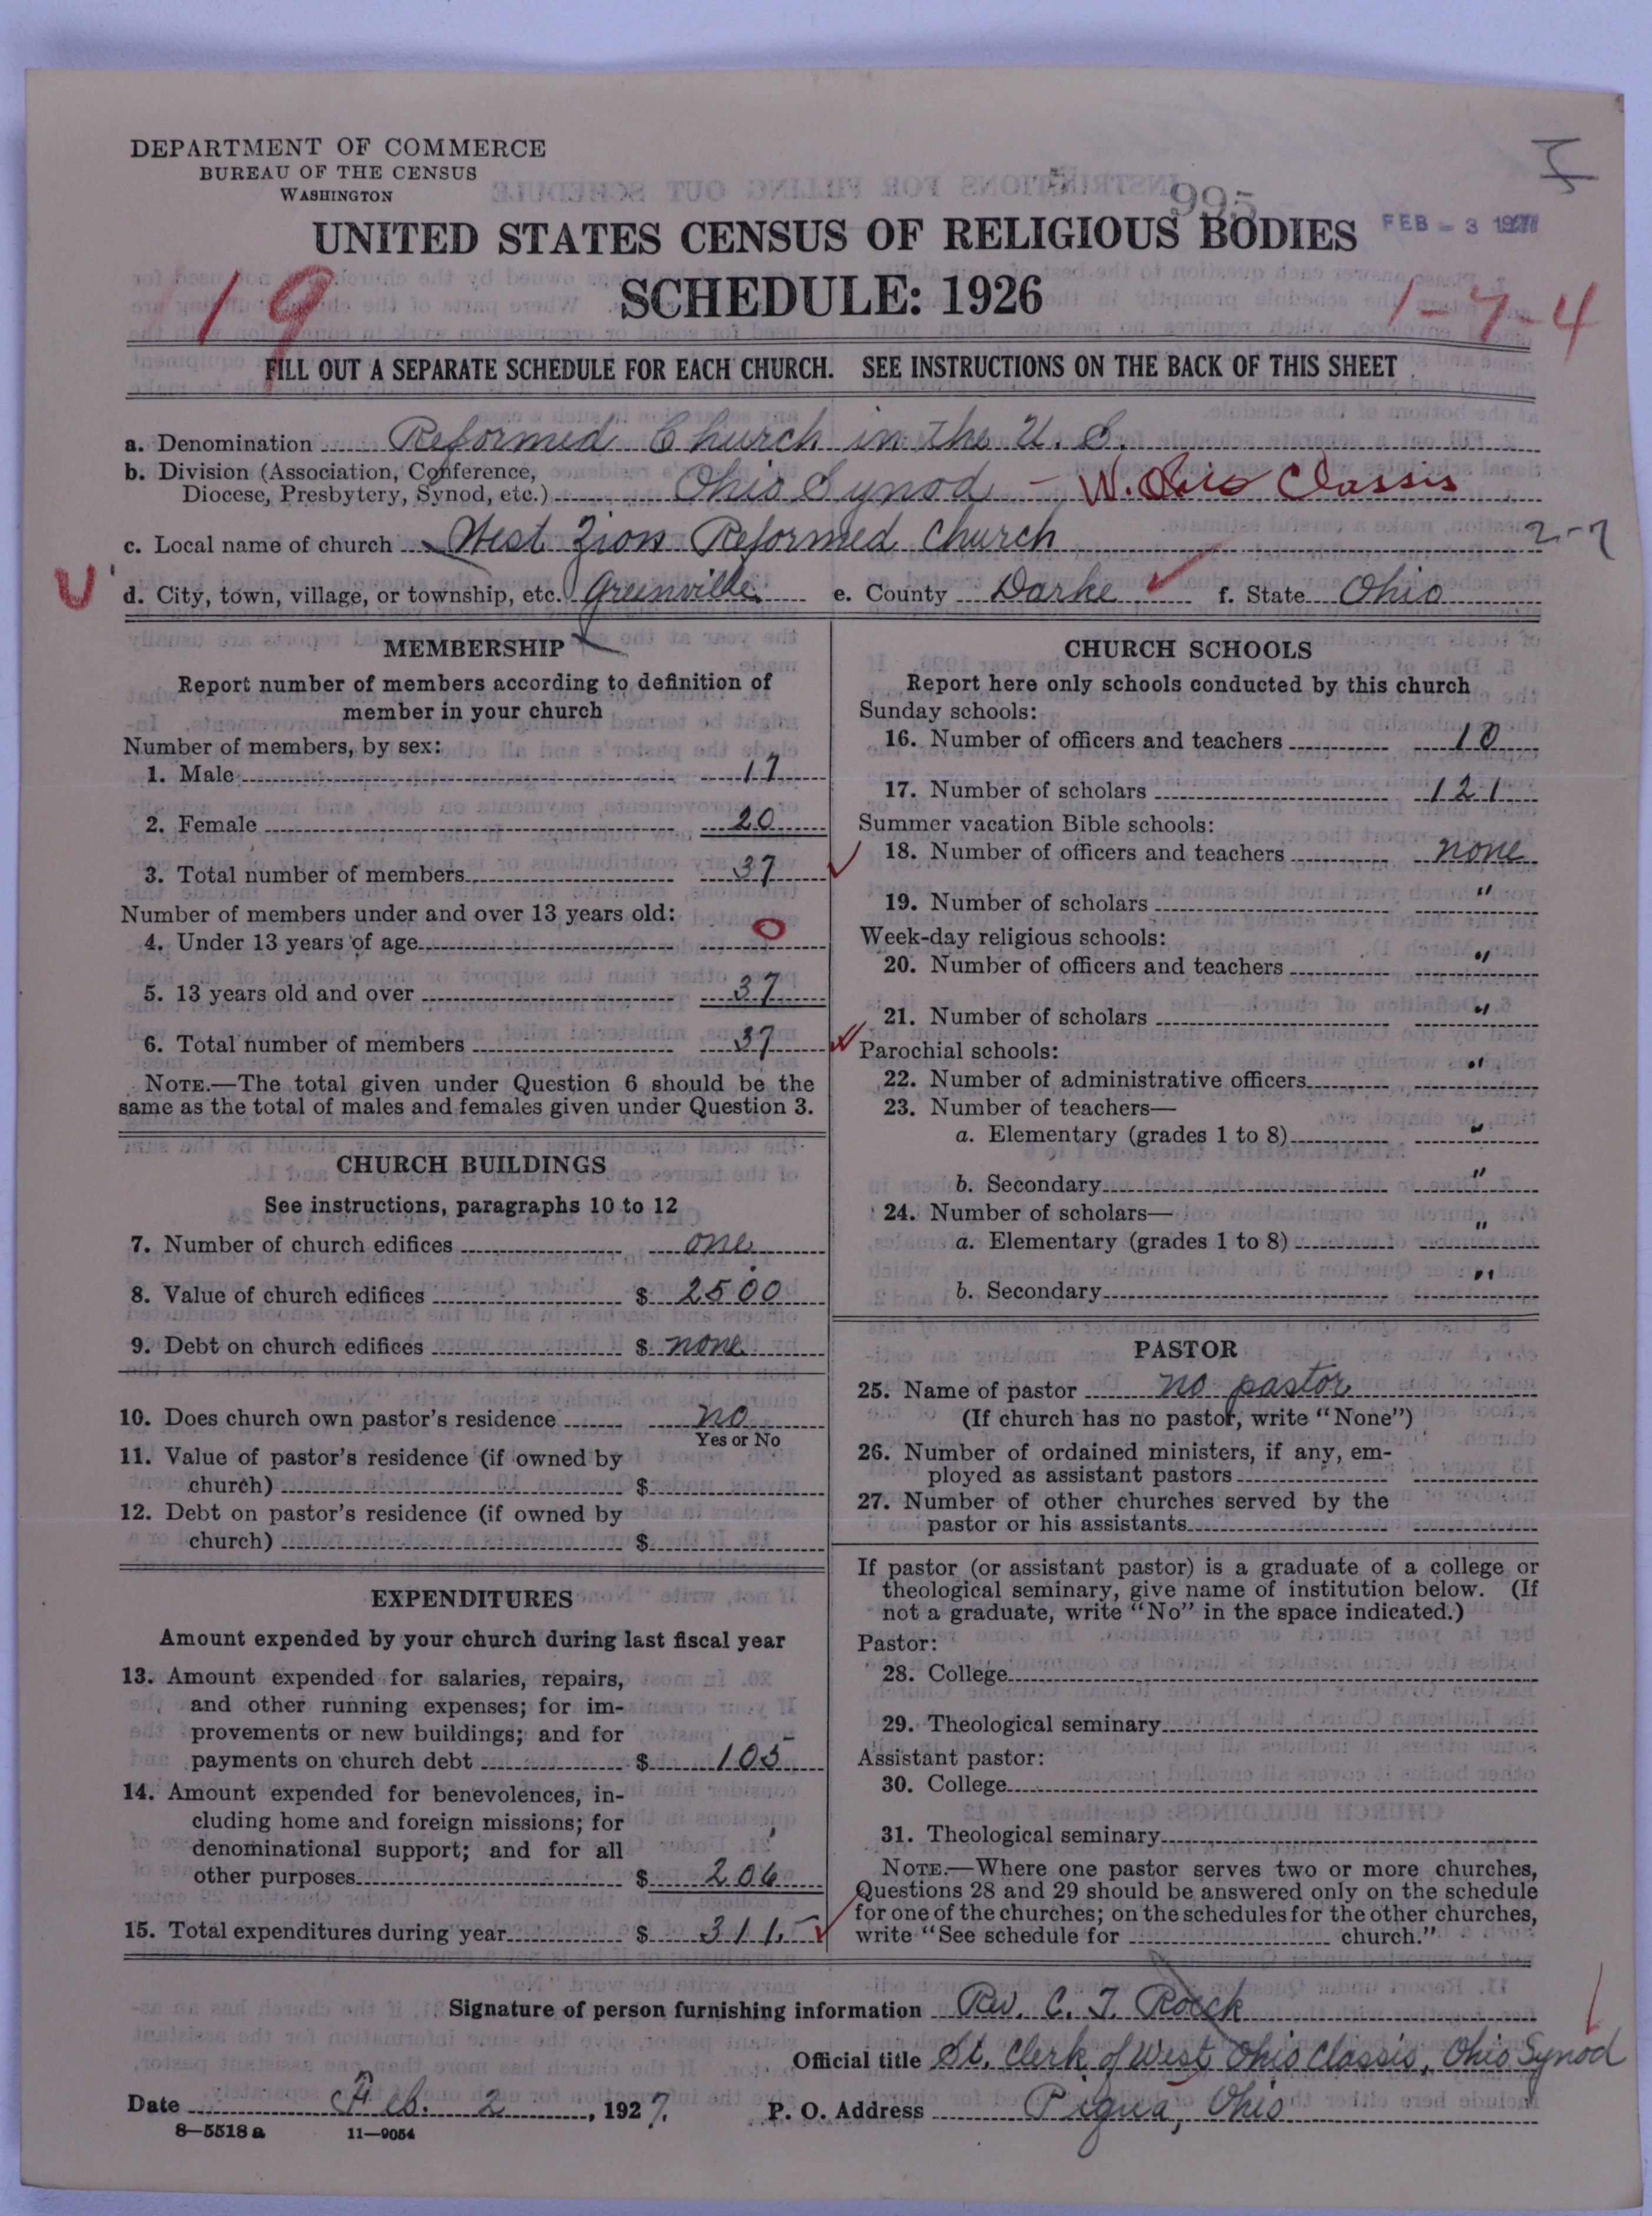 DEPARTMENT OF COMMERCE
BUREAU OF THE CENSUS
WASHINGTON
995
UNITED STATES CENSUS OF RELIGIOUS BODIES
FEB - 3 1927
SCHEDULE: 1926
19
1-7-4
FILL OUT A SEPARATE SCHEDULE FOR EACH CHURCH. SEE INSTRUCTIONS ON THE BACK OF THIS SHEET
a. Denomination Reformed Church in the U. S.
b. Division (Association, Conference,
Diocese, Presbytery, Synod, etc.) Ohio Synod - W. Ohio Classis
c. Local name of church West Zion Reformed Church 2-7
U d. City, town, village, or township, etc. Greenville e. County Darke f. State Ohio
MEMBERSHIP
Report number of members according to definition of
member in your church
Number of members, by sex:
1. Male 17
2. Female 20
3. Total number of members 37
Number of members under and over 13 years old:
4. Under 13 years of age 0
5. 13 years old and over 37
6. Total number of members 37
NOTE.—The total given under Question 6 should be the
same as the total of males and females given under Question 3.
CHURCH BUILDINGS
See instructions, paragraphs 10 to 12
7. Number of church edifices one
8. Value of church edifices $ 2500
9. Debt on church edifices $ none
10. Does church own pastor's residence no
Yes or No
11. Value of pastor's residence (if owned by
church) $
12. Debt on pastor's residence (if owned by
church) $
EXPENDITURES
Amount expended by your church during last fiscal year
13. Amount expended for salaries, repairs,
and other running expenses; for im-
provements or new buildings; and for
payments on church debt $ 105
14. Amount expended for benevolences, in-
cluding home and foreign missions; for
denominational support; and for all
other purposes $ 206
15. Total expenditures during year $ 311.
CHURCH SCHOOLS
Report here only schools conducted by this church
Sunday schools:
16. Number of officers and teachers 10
17. Number of scholars 121
Summer vacation Bible schools:
18. Number of officers and teachers none
19. Number of scholars "
Week-day religious schools:
20. Number of officers and teachers "
21. Number of scholars "
Parochial schools:
22. Number of administrative officers "
23. Number of teachers—
a. Elementary (grades 1 to 8) "
b. Secondary "
24. Number of scholars—
a. Elementary (grades 1 to 8) "
b. Secondary "
PASTOR
25. Name of pastor no pastor
(If church has no pastor, write "None")
26. Number of ordained ministers, if any, em-
ployed as assistant pastors
27. Number of other churches served by the
pastor or his assistants
If pastor (or assistant pastor) is a graduate of a college or
theological seminary, give name of institution below. (If
not a graduate, write "No" in the space indicated.)
Pastor:
28. College
29. Theological seminary
Assistant pastor:
30. College
31. Theological seminary
NOTE.—Where one pastor serves two or more churches,
Questions 28 and 29 should be answered only on the schedule
for one of the churches; on the schedules for the other churches,
write "See schedule for church."
Signature of person furnishing information Rev. C. T. Roeck
Official title St. Clerk of West Ohio Classis, Ohio Synod
Date Feb. 2, 1927. P. O. Address Piqua, Ohio
8—5518 a 11—9054